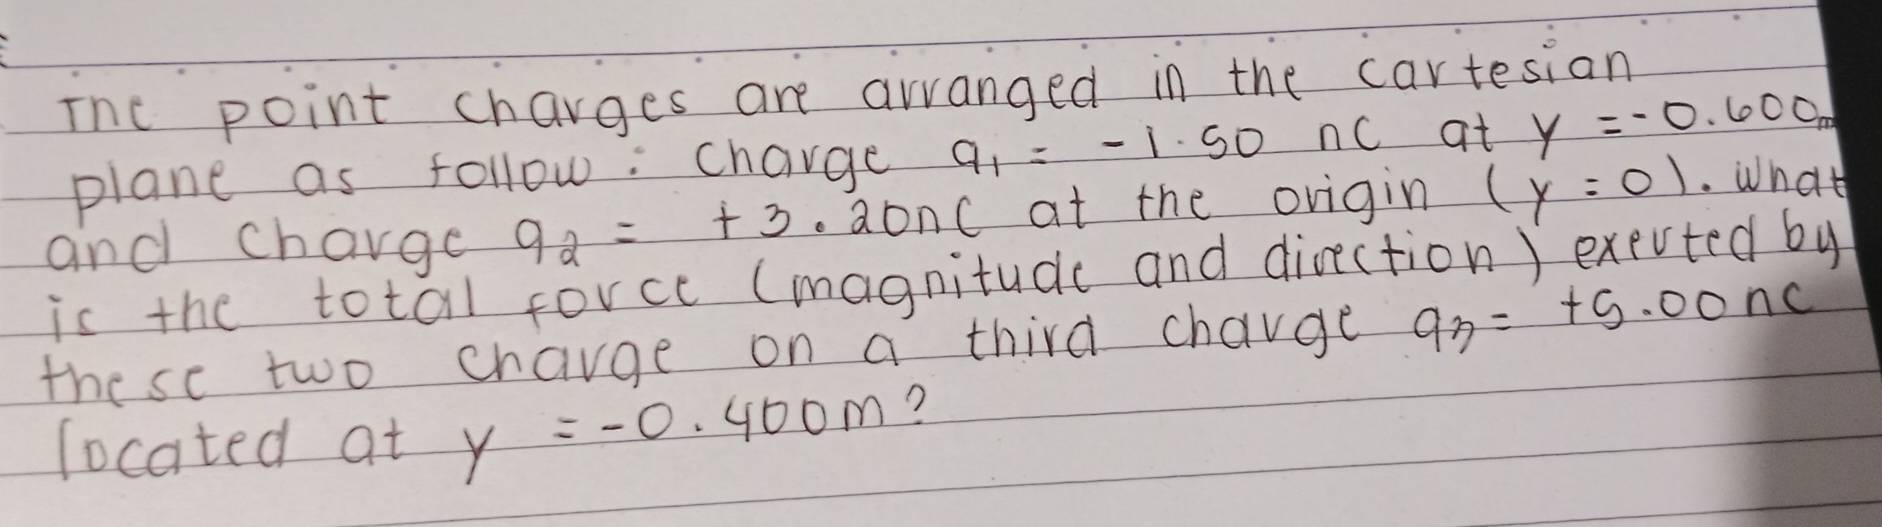 The point charges are arranged in the cartesian
plane as follow: Charge q₁ = -1.50 nC at y = -0.600m
and charge q₂ = +3.20nC at the origin (y=0). What
is the total force (magnitude and direction) exerted by
these two charge on a third charge q₃= +5.00nC
located at y = -0.400m?